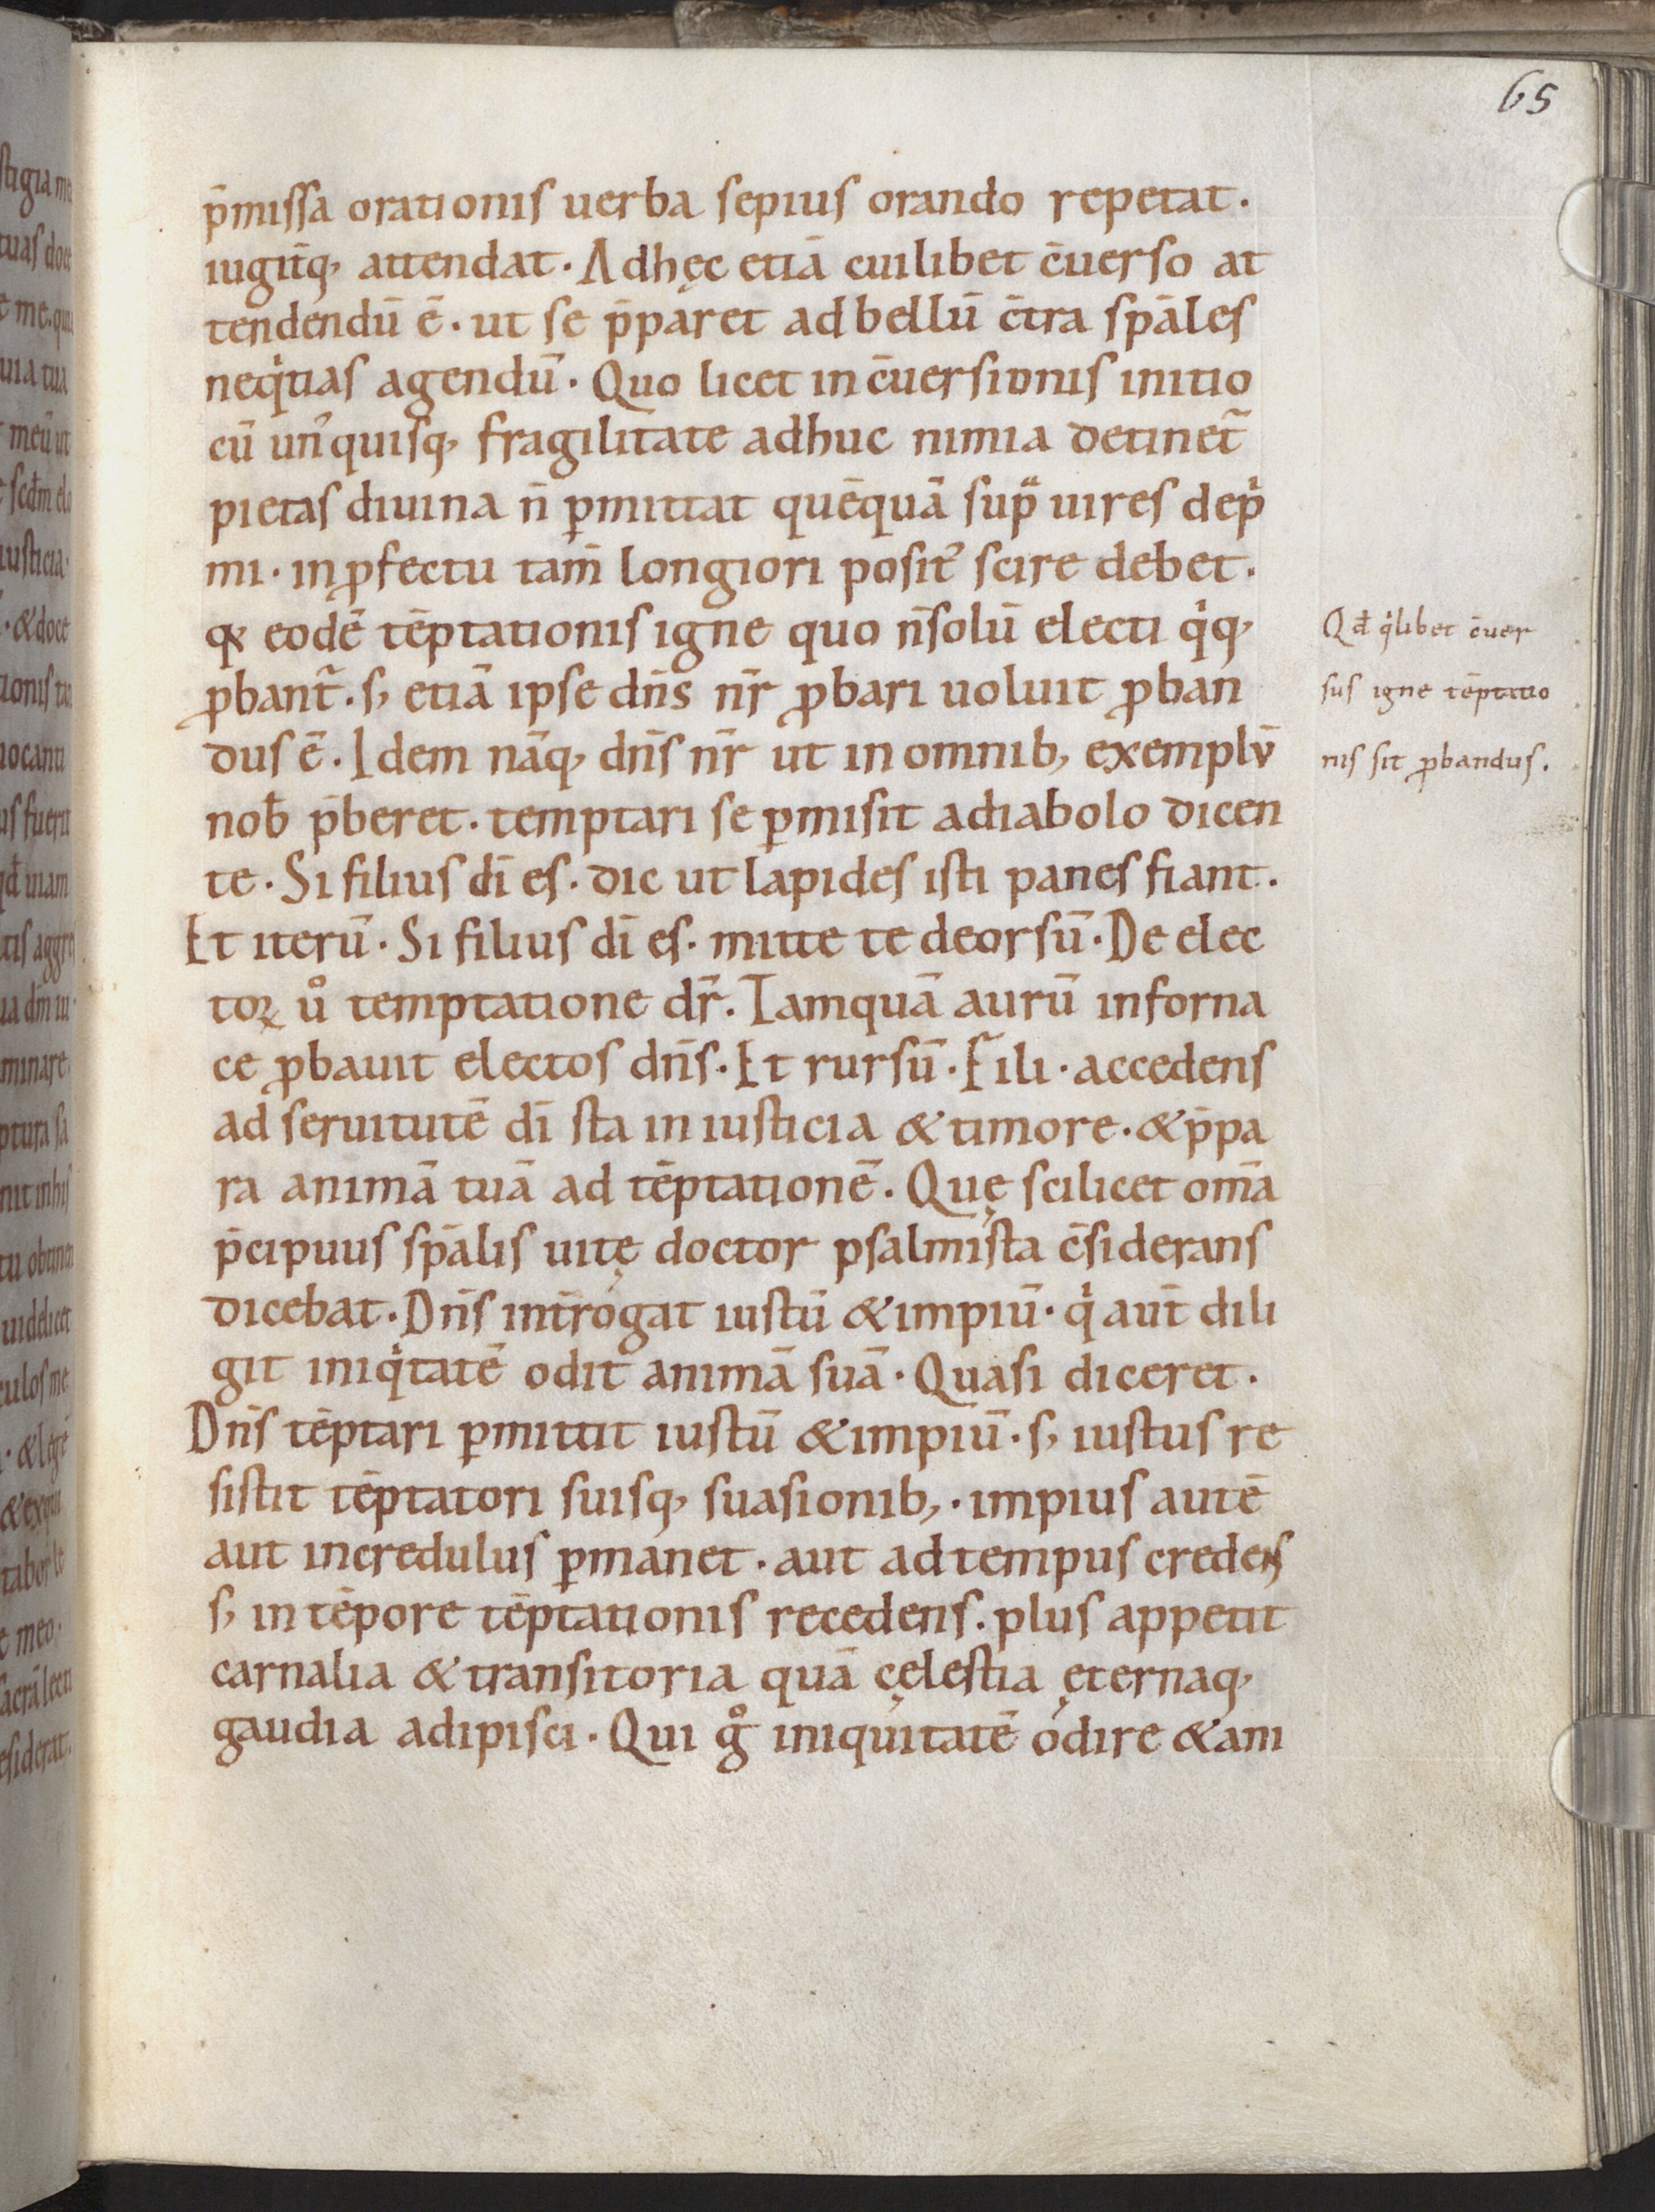 65
p̄missa orationis uerba sepius orando repetat·
iugit̄q; attendat· Adhęc etiā cuilibet c̄uerso at
tendendū ē· ut se p̄paret ad bellū c̄tra sp̄ales
neqͥtias agendū· Quo licet in c̄uersionis initio
cū un᾽quisq; fragilitate adhuc nimia detinet᷑
pietas diuina n̄ ꝑmittat quēquā suꝑ uires depͥ
mi· in ꝓfectu tam̄ longiori posit᾽ scire debet·
qꝫ eodē tēptationis igne quo n̄ solū electi qͥq;
ꝓbant᷑· s; etiā ipse dn̄s nr̄ ꝓbari uoluit ꝓban
dus ē· Idem nāq; dn̄s nr̄ ut in omnib; exemplū
nob̄ p̄beret· temptari se ꝑmisit a diabolo dicen
te· Si filius dī es· dic ut lapides isti panes fiant·
Et iterū· Si filius dī es· mitte te deorsū· De elec
toꝝ uͦ temptatione dr̄· Tamquā aurū in forna
ce ꝓbauit electos dn̄s· Et rursū· Fili· accedens
ad seruitutē dī sta in iusticia & timore· & p̄pa
ra animā tuā ad tēptationē· Quę scilicet om̄a
p̄cipuus sp̄alis uitę doctor psalmista c̄siderans
dicebat· Dn̄s int̄rogat iustū & impiū· qͥ aut̄ dili
git iniqͥtatē odit animā suā· Quasi diceret·
Dn̄s tēptari ꝑmittit iustū & impiū· s; iustus re
sistit tēptatori suisq; suasionib;· impius autē
aut incredulus ꝑmanet· aut ad tempus credens
s; in tēpore tēptationis recedens· plus appetit
carnalia & transitoria quā cęlestia ęternaq;
gaudia adipisci· Qui gͦ iniquitatē odire & ani
Qd̄ qͥlibet c̄uer
sus igne tēptatio
nis sit ꝓbandus.